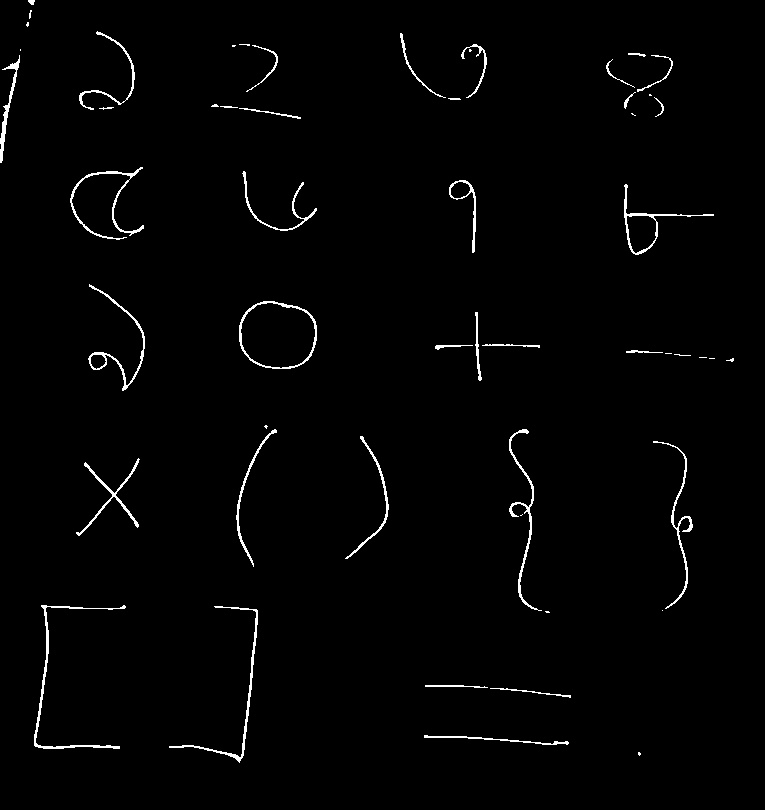 ১ ২ ৩ ৪
৫ ৬ ৭ ৮
৯ ০ + −
× ( ) { }
[ ] = .